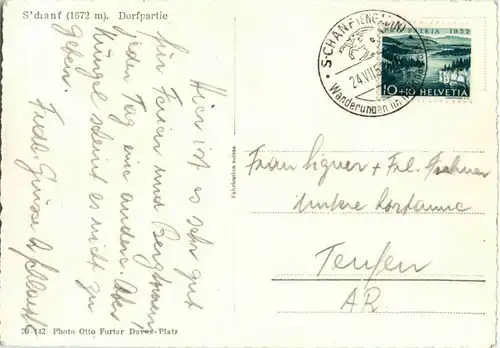 S'chanf (1672 m). Dorfpartie
Hier ist es sehr gut
für Ferien und Bergtouren,
jeden Tag eine andere. Aber
Mangel scheint es nicht zu
geben.
Fredl. Grüsse
20-142 Photo Otto Furter Davos-Platz
Fabrication suisse
S-CHANF (ENGADIN)
24.VII.52
Wanderungen im
PRO PATRIA 1952
10+10 HELVETIA
Frau Signer + Frl.
Untere Lortanne
Teufen
AR.